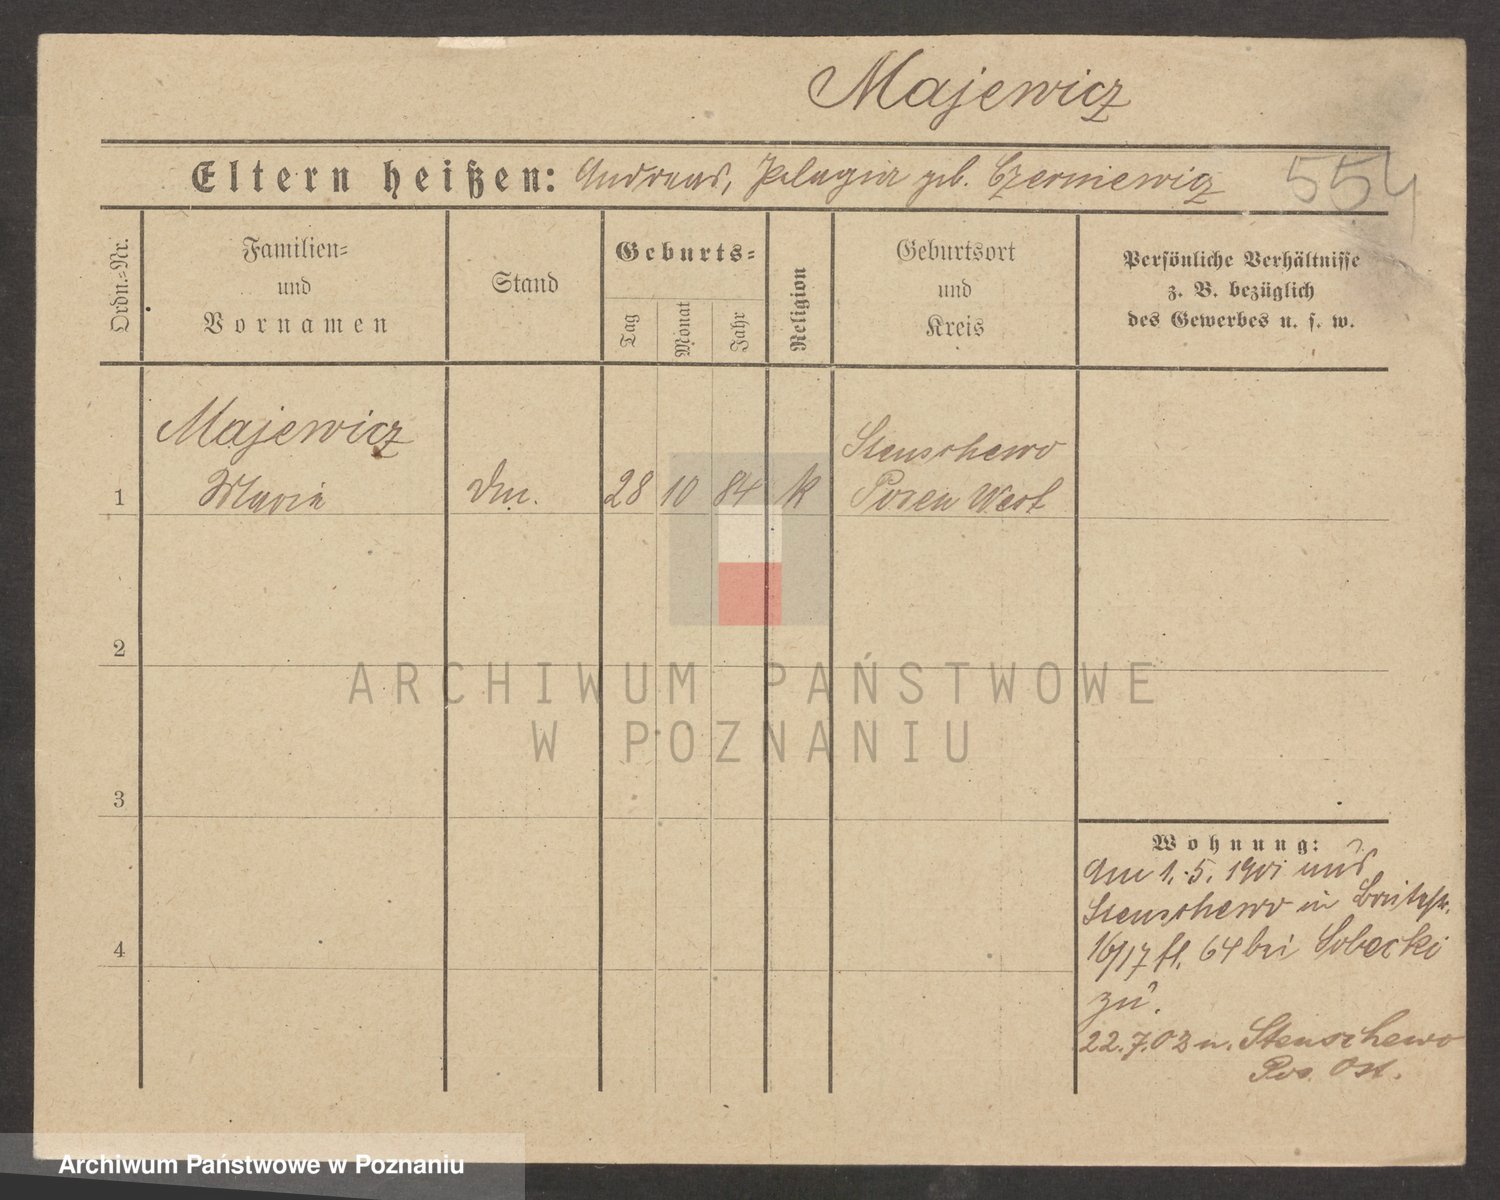 Majewicz
Eltern heißen: Andreas, Pelagia geb. Czerniewicz
554
Ordn.=Nr.
Familien=
und
Vornamen
Stand
Geburts=
Tag
Monat
Jahr
Religion
Geburtsort
und
Kreis
Persönliche Verhältnisse
z. B. bezüglich
des Gewerbes u. s. w.
Majewicz
Stenschewo
1 Maria Dm. 28 10 84 k Posen West
2
ARCHIWUM PAŃSTWOWE
W POZNANIU
3
Wohnung:
Am 1. 5. 1901 aus
Stenschewo in Breitestr.
16/17 64 bei Sobecki
zu.
22.7.03 n. Stenschewo
Pos. Ost.
4
Archiwum Państwowe w Poznaniu